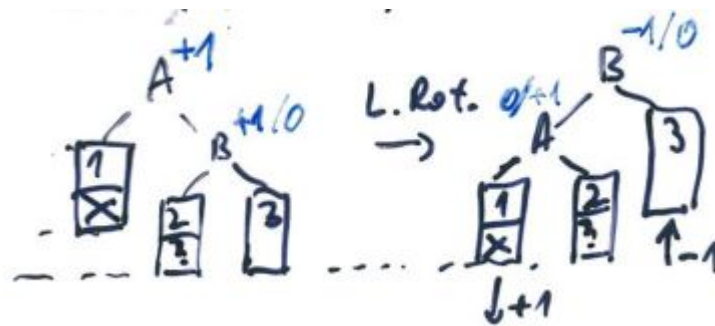 A +1
B +1/0
1
X
2
?
3
L. Rot.
→
B -1/0
A 0/+1
1
X
2
?
3
↓+1
↑-1